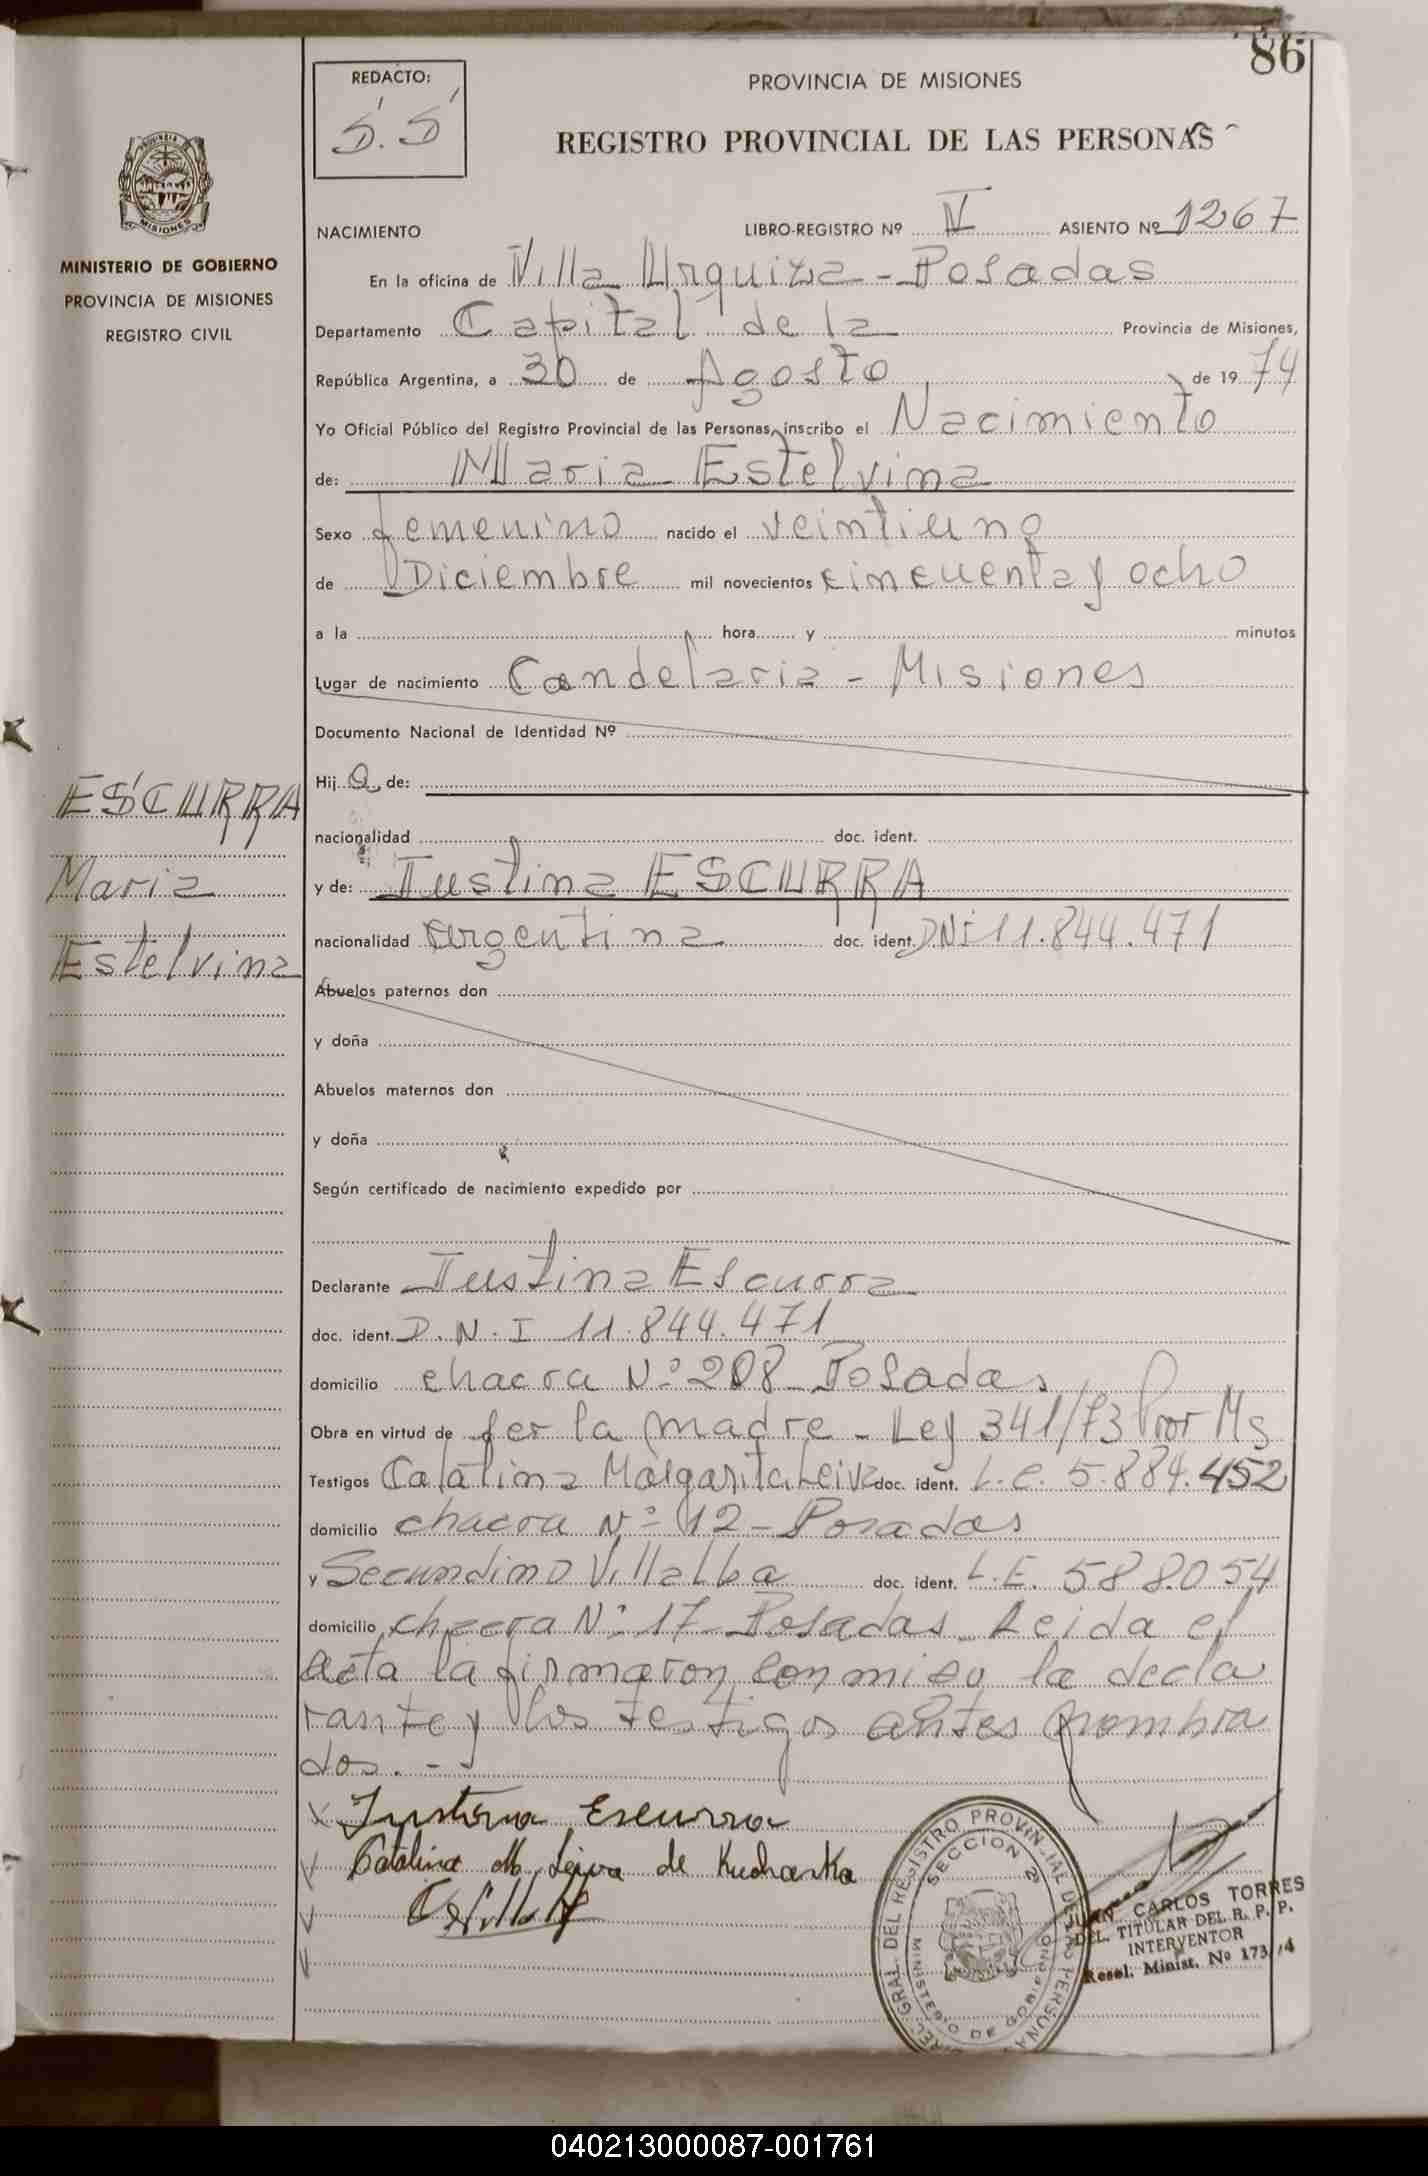 86
REDACTO:
S. S
PROVINCIA DE MISIONES
REGISTRO PROVINCIAL DE LAS PERSONAS
MINISTERIO DE GOBIERNO
PROVINCIA DE MISIONES
REGISTRO CIVIL
NACIMIENTO LIBRO-REGISTRO Nº IV ASIENTO Nº 1267
En la oficina de Villa Urquiza - Posadas
Departamento Capital de la Provincia de Misiones,
República Argentina, a 30 de Agosto de 1974
Yo Oficial Público del Registro Provincial de las Personas, inscribo el Nacimiento
de: Maria Estelvina
Sexo femenino nacido el veintiuno
de Diciembre mil novecientos cincuenta y ocho
a la hora y minutos
Lugar de nacimiento Candelaria - Misiones
Documento Nacional de Identidad Nº
Hij a de:
ESCURRA
Maria
Estelvina
nacionalidad doc. ident.
y de: Justina ESCURRA
nacionalidad argentina doc. ident. DNI 11.844.471
Abuelos paternos don
y doña
Abuelos maternos don
y doña
Según certificado de nacimiento expedido por
Declarante Justina Escurra
doc. ident. D.N.I 11.844.471
domicilio chacra Nº 208 Posadas
Obra en virtud de ser la madre - Ley 341/73 Pror Ms
Testigos Catalina Margarita Leiva doc. ident. L.C. 5.884.452
domicilio chacra Nº 12 - Posadas
y Secundino Villalba doc. ident. L.E. 588.054
domicilio chacra Nº 17 Posadas. Leida el
acta la firmaron conmigo la decla
rante y los testigos antes nombra
dos. -
Justina Escurra
Catalina M. Leiva de Kucharka
DEL REGISTRO PROVINCIAL DE LAS PERSONAS
SECCION 2ª
MINISTERIO DE GOBIERNO
JUAN CARLOS TORRES
DEL. TITULAR DEL R. P. P.
INTERVENTOR
Resol. Minist. Nº 173/74
040213000087-001761